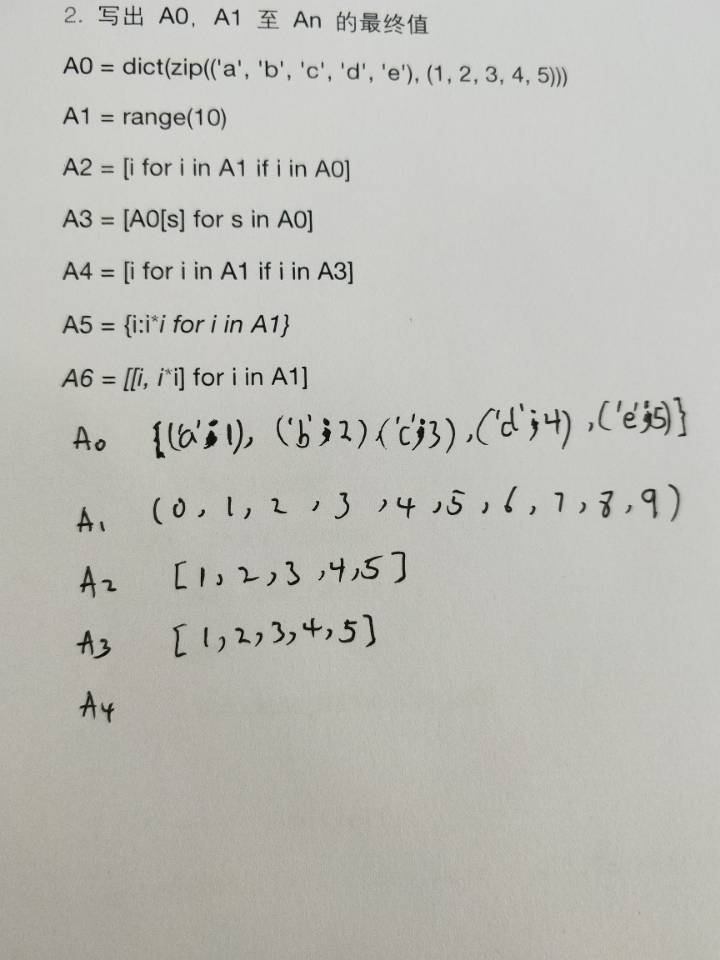 2. 写出 A0, A1 至 An 的最终值
A0 = dict(zip(('a', 'b', 'c', 'd', 'e'), (1, 2, 3, 4, 5)))
A1 = range(10)
A2 = [i for i in A1 if i in A0]
A3 = [A0[s] for s in A0]
A4 = [i for i in A1 if i in A3]
A5 = {i:i*i for i in A1}
A6 = [[i, i*i] for i in A1]
A0 {('a';1), ('b';2), ('c';3), ('d';4), ('e';5)}
A1 (0, 1, 2, 3, 4, 5, 6, 7, 8, 9)
A2 [1, 2, 3, 4, 5]
A3 [1, 2, 3, 4, 5]
A4